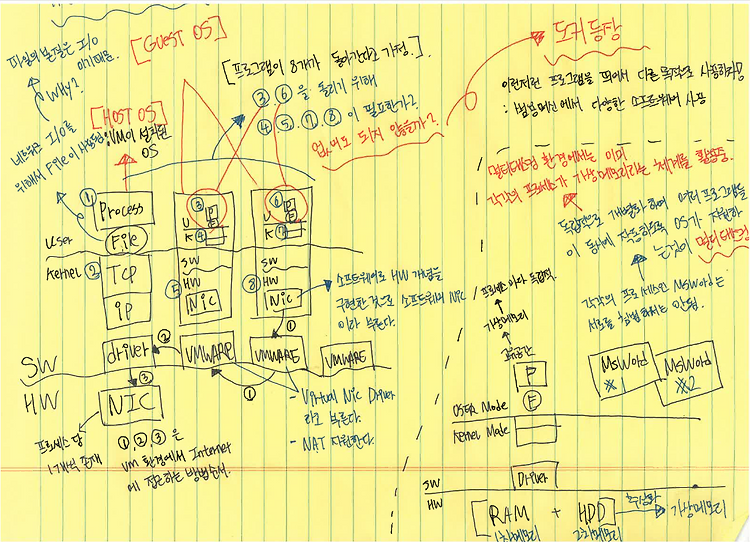 파일의 본질은 I/O
이기때문.
Why?
네트워크 I/O를
위해서 File이 사용됨
[GUEST OS]
[HOST OS]
:VM이 설치된
OS
[프로그램이 8개가 돌아간다고 가정.]
③,⑥을 돌리기 위해
④,⑤,⑦,⑧이 필요한가?
없어도 되지 않을까?
도커 등장
이런저런 프로그램을 띄어서 다른 목적으로 사용하려함
: 범용머신에서 다양한 소프트웨어 사용
멀티태스킹 환경에서는 이미
각각의 프로세스가 가상메모리라는 체계를 활용중.
독립적으로 개별화 하여 여러 프로그램들
이 동시에 작동하도록 OS가 지원하
는것이 멀티태스킹
각각의 프로세스인 MSWord는
서로를 침범해서는 안됨.
MSWord
※1
MSWord
※2
①
Process
File
User
Kernel
②
TCP
IP
③
P
F
U
K
④
SW
HW
⑤
NIC
⑥
P
F
U
K
⑦
SW
HW
⑧
NIC
소프트웨어로 HW 개념을
구현한 것으로 소프트웨어의 NIC
이라 부른다.
SW
HW
driver
②
VMWARE
①
VMWARE
VMWARE
①
③
NIC
프로세스 당
1개씩 존재
①,②,③은
VM 환경에서 Internet
에 접근하는 방법순서.
- Virtual NIC Driver
라고 부른다.
- NAT 지원한다.
프로세스마다 독립적.
가상메모리
고유공간
P
USER Mode
F
Kernel Mode
Driver
SW
HW
[RAM + HDD]
1차메모리
2차메모리
추상화
가상메모리